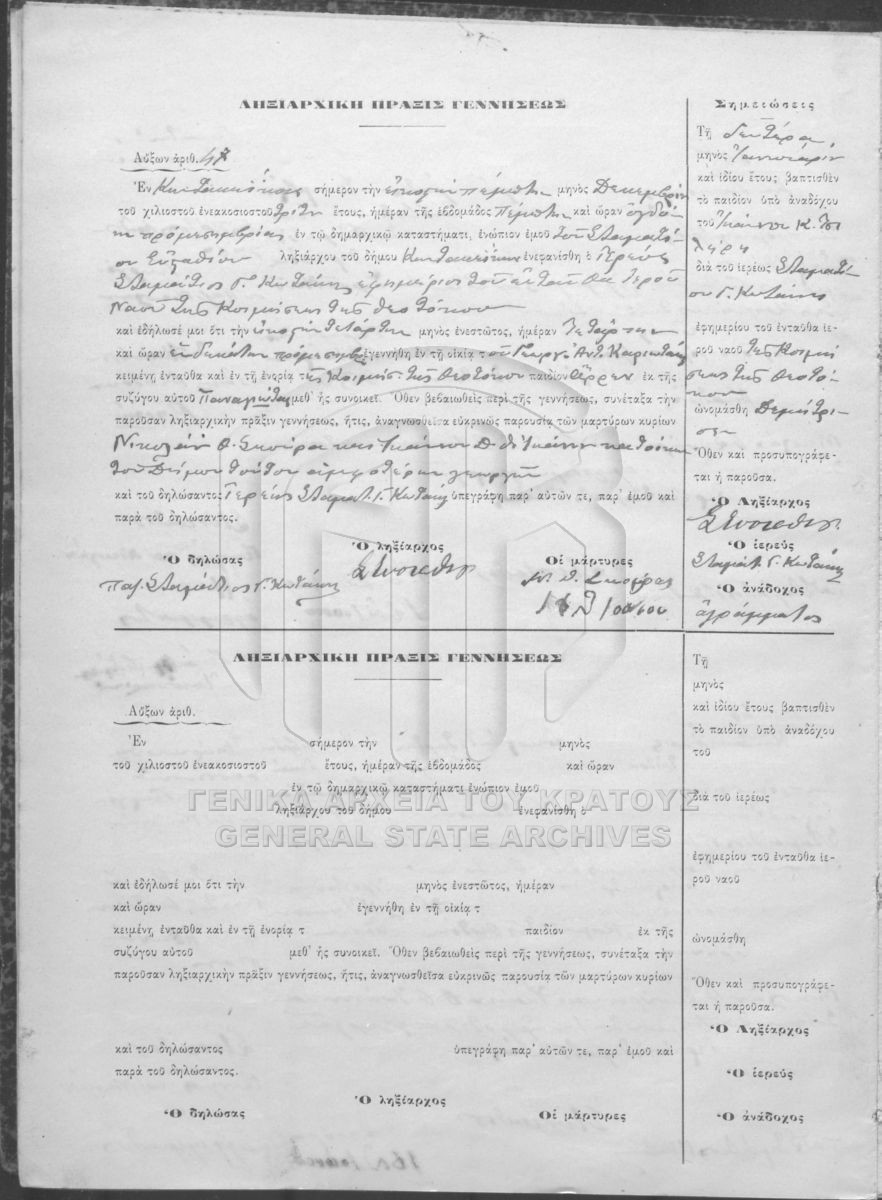 ΛΗΞΙΑΡΧΙΚΗ ΠΡΑΞΙΣ ΓΕΝΝΗΣΕΩΣ
Αὔξων ἀριθ. 47
Ἐν σήμερον τὴν εἰκοστὴν πέμπτην μηνὸς Δεκεμβρίου
τοῦ χιλιοστοῦ ἐνεακοσιοστοῦ τρίτου ἔτους, ἡμέραν τῆς ἑβδομάδος Πέμπτην καὶ ὥραν ὀγδό-
ην πρὸ μεσημβρίας ἐν τῷ δημαρχικῷ καταστήματι, ἐνώπιον ἐμοῦ τοῦ Σταματί-
ου Εὐσταθίου ληξιάρχου τοῦ δήμου ἐνεφανίσθη ὁ Ἱερεὺς
Σταμάτιος Γ. Κωτάκης ἐφημέριος τοῦ ἐνταῦθα Ἱεροῦ
Ναοῦ τῆς Κοιμήσεως τῆς Θεοτόκου
καὶ ἐδήλωσέ μοι ὅτι τὴν εἰκοστὴν τετάρτην μηνὸς ἐνεστῶτος, ἡμέραν Τετάρτην
καὶ ὥραν ἑνδεκάτην πρὸ μεσημβρ. ἐγεννήθη ἐν τῇ οἰκίᾳ τοῦ Γεωργ. Ἀντ.
κειμένῃ ἐνταῦθα καὶ ἐν τῇ ἐνορίᾳ τῆς Κοιμήσ. τῆς Θεοτόκου παιδίον ἄρρεν ἐκ τῆς
συζύγου αὐτοῦ Παναγιώτας μεθ' ἧς συνοικεῖ. Ὅθεν βεβαιωθεὶς περὶ τῆς γεννήσεως, συνέταξα τὴν
παροῦσαν ληξιαρχικὴν πρᾶξιν γεννήσεως, ἥτις, ἀναγνωσθεῖσα εὐκρινῶς παρουσίᾳ τῶν μαρτύρων κυρίων
Νικολάου Θ. Σκούρα καὶ Ἰωάννου Δ. κατοίκων
τοῦ Δήμου τούτου ἀμφοτέρων γεωργῶν
καὶ τοῦ δηλώσαντος Ἱερέως Σταματ. Γ. Κωτάκη ὑπεγράφη παρ' αὐτῶν τε, παρ' ἐμοῦ καὶ
παρὰ τοῦ δηλώσαντος.
Ὁ δηλώσας
Ὁ ληξίαρχος
Οἱ μάρτυρες
Παπ. Σταμάτιος Γ. Κωτάκης
Ν. Θ. Σκούρας
Σημειώσεις
Τῇ δευτέρᾳ
μηνὸς Ἰαννουαρίου
καὶ ἰδίου ἔτους βαπτισθὲν
τὸ παιδίον ὑπὸ ἀναδόχου
τοῦ Ἰωάννου Κ.
διὰ τοῦ ἱερέως Σταματί-
ου Γ. Κωτάκη
ἐφημερίου τοῦ ἐνταῦθα ἱε-
ροῦ ναοῦ τῆς Κοιμή-
σεως τῆς Θεοτό-
κου
ὠνομάσθη Δημήτρι-
ος
Ὅθεν καὶ προσυπογράφε-
ται ἡ παροῦσα.
Ὁ Ληξίαρχος
Ὁ ἱερεὺς
Σταμάτ. Γ. Κωτάκης
Ὁ ἀνάδοχος
ἀγράμματος
ΛΗΞΙΑΡΧΙΚΗ ΠΡΑΞΙΣ ΓΕΝΝΗΣΕΩΣ
Αὔξων ἀριθ.
Ἐν σήμερον τὴν μηνὸς
τοῦ χιλιοστοῦ ἐνεακοσιοστοῦ ἔτους, ἡμέραν τῆς ἑβδομάδος καὶ ὥραν
ἐν τῷ δημαρχικῷ καταστήματι ἐνώπιον ἐμοῦ
ληξιάρχου τοῦ δήμου ἐνεφανίσθη ὁ
καὶ ἐδήλωσέ μοι ὅτι τὴν μηνὸς ἐνεστῶτος, ἡμέραν
καὶ ὥραν ἐγεννήθη ἐν τῇ οἰκίᾳ τ
κειμένῃ ἐνταῦθα καὶ ἐν τῇ ἐνορίᾳ τ παιδίον ἐκ τῆς
συζύγου αὐτοῦ μεθ' ἧς συνοικεῖ. Ὅθεν βεβαιωθεὶς περὶ τῆς γεννήσεως, συνέταξα τὴν
παροῦσαν ληξιαρχικὴν πρᾶξιν γεννήσεως, ἥτις, ἀναγνωσθεῖσα εὐκρινῶς παρουσίᾳ τῶν μαρτύρων κυρίων
καὶ τοῦ δηλώσαντος ὑπεγράφη παρ' αὐτῶν τε, παρ' ἐμοῦ καὶ
παρὰ τοῦ δηλώσαντος.
Ὁ δηλώσας
Ὁ ληξίαρχος
Οἱ μάρτυρες
Τῇ
μηνὸς
καὶ ἰδίου ἔτους βαπτισθὲν
τὸ παιδίον ὑπὸ ἀναδόχου
τοῦ
διὰ τοῦ ἱερέως
ἐφημερίου τοῦ ἐνταῦθα ἱε-
ροῦ ναοῦ
ὠνομάσθη
Ὅθεν καὶ προσυπογράφε-
ται ἡ παροῦσα.
Ὁ Ληξίαρχος
Ὁ ἱερεὺς
Ὁ ἀνάδοχος
ΓΕΝΙΚΑ ΑΡΧΕΙΑ ΤΟΥ ΚΡΑΤΟΥΣ
GENERAL STATE ARCHIVES